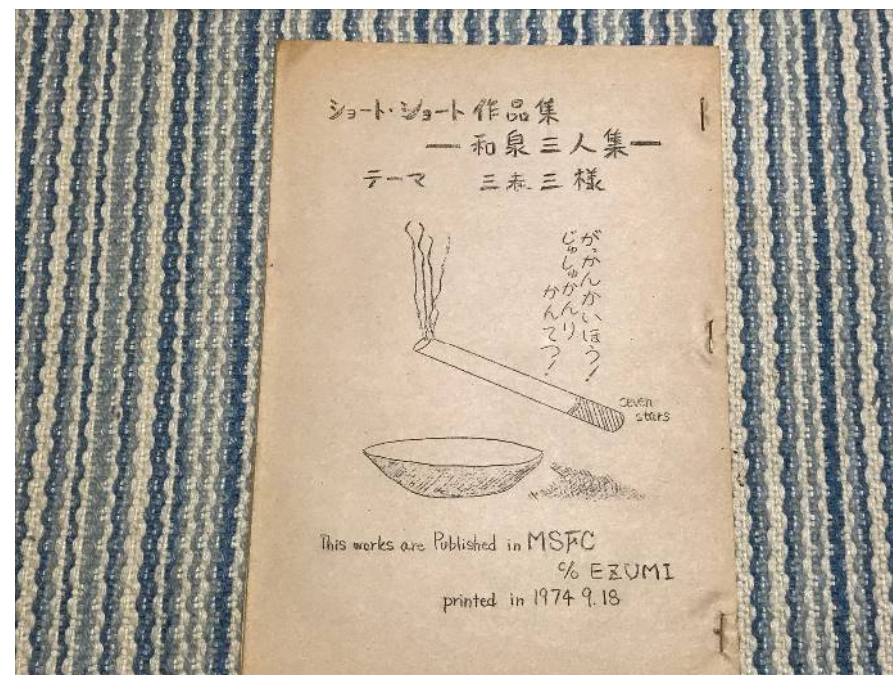 ショート・ショート作品集
― 和泉三人集 ―
テーマ 三赤三様
がっかんかいほう!
じゅしゅかんり
かんてつ!
seven
stars
This works are Published in MSFC
c/o EZUMI
printed in 1974 9.18